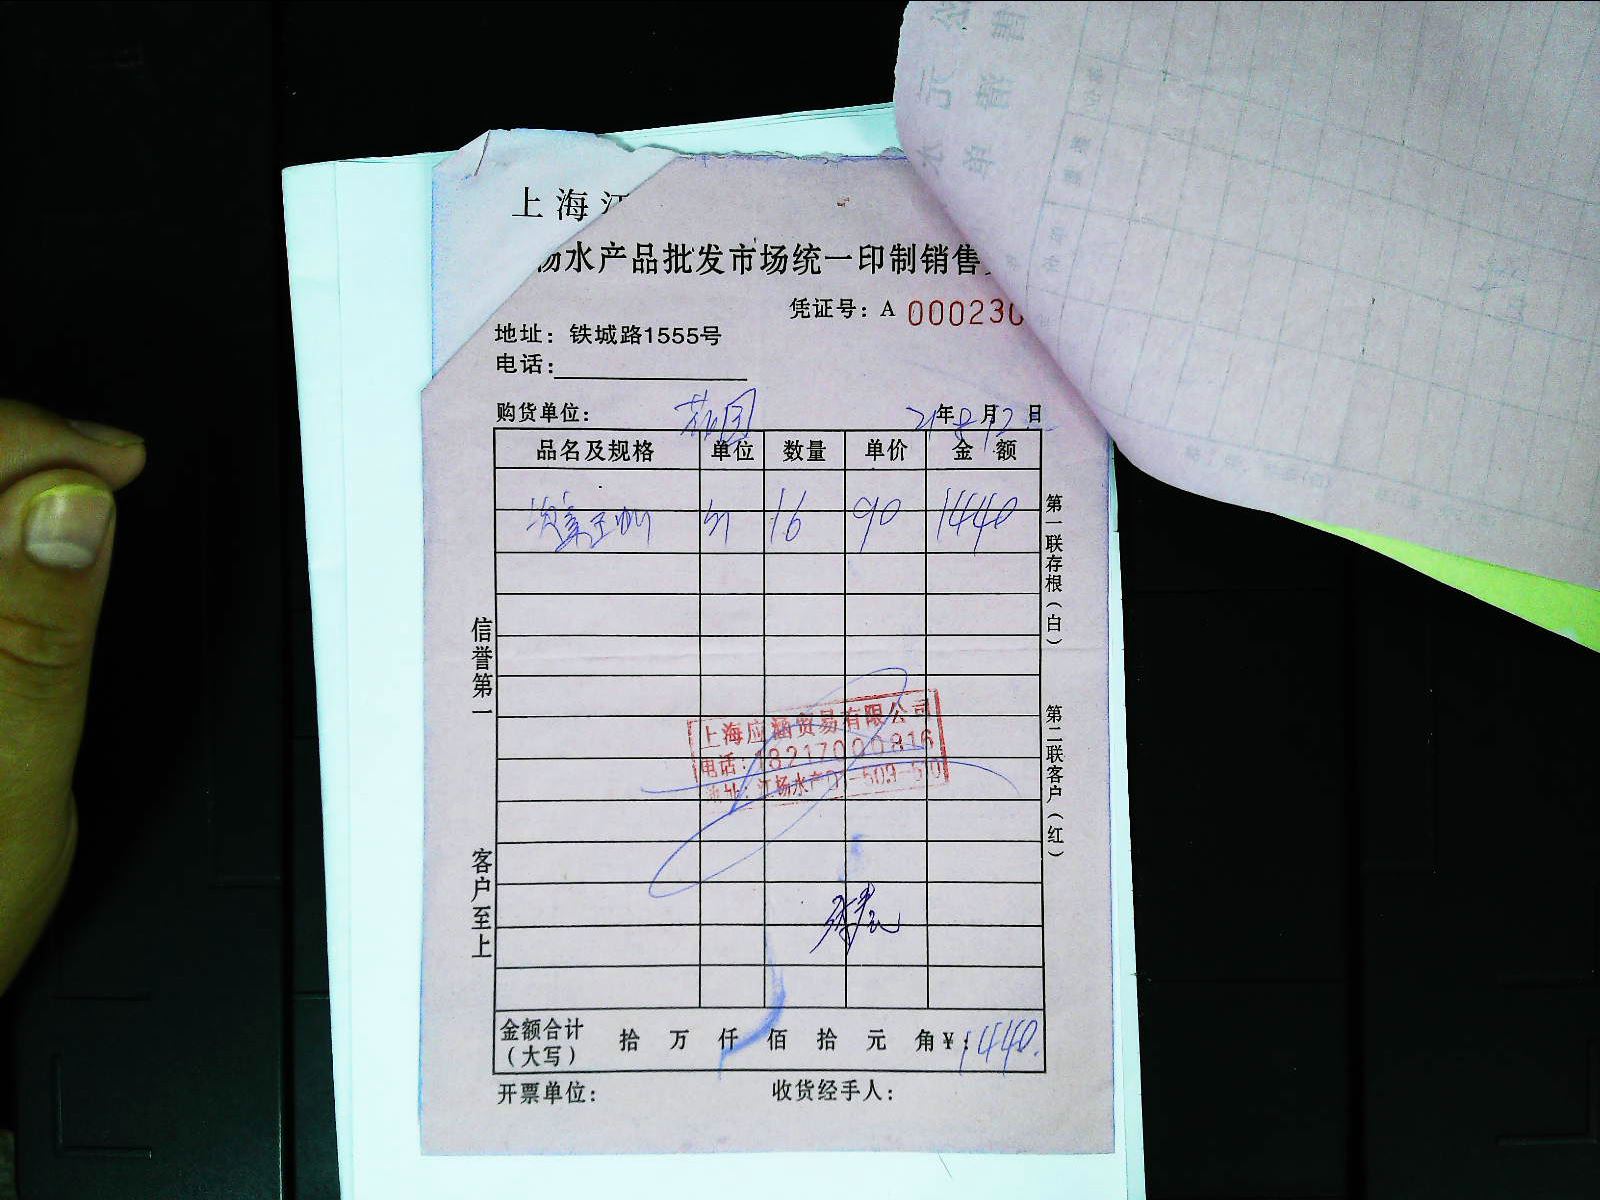 上海江
杨水产品批发市场统一印制销售
凭证号：A 000230
地址：铁城路1555号
电话：
购货单位：花园 21年8月12日
品名及规格 单位 数量 单价 金额
16 90 1440
第一联存根（白）
第二联客户（红）
信誉第一
客户至上
上海应涵贸易有限公司
电话：18217000816
地址：江杨水产
金额合计（大写） 拾 万 仟 佰 拾 元 角 ￥：1440.
开票单位： 收货经手人：